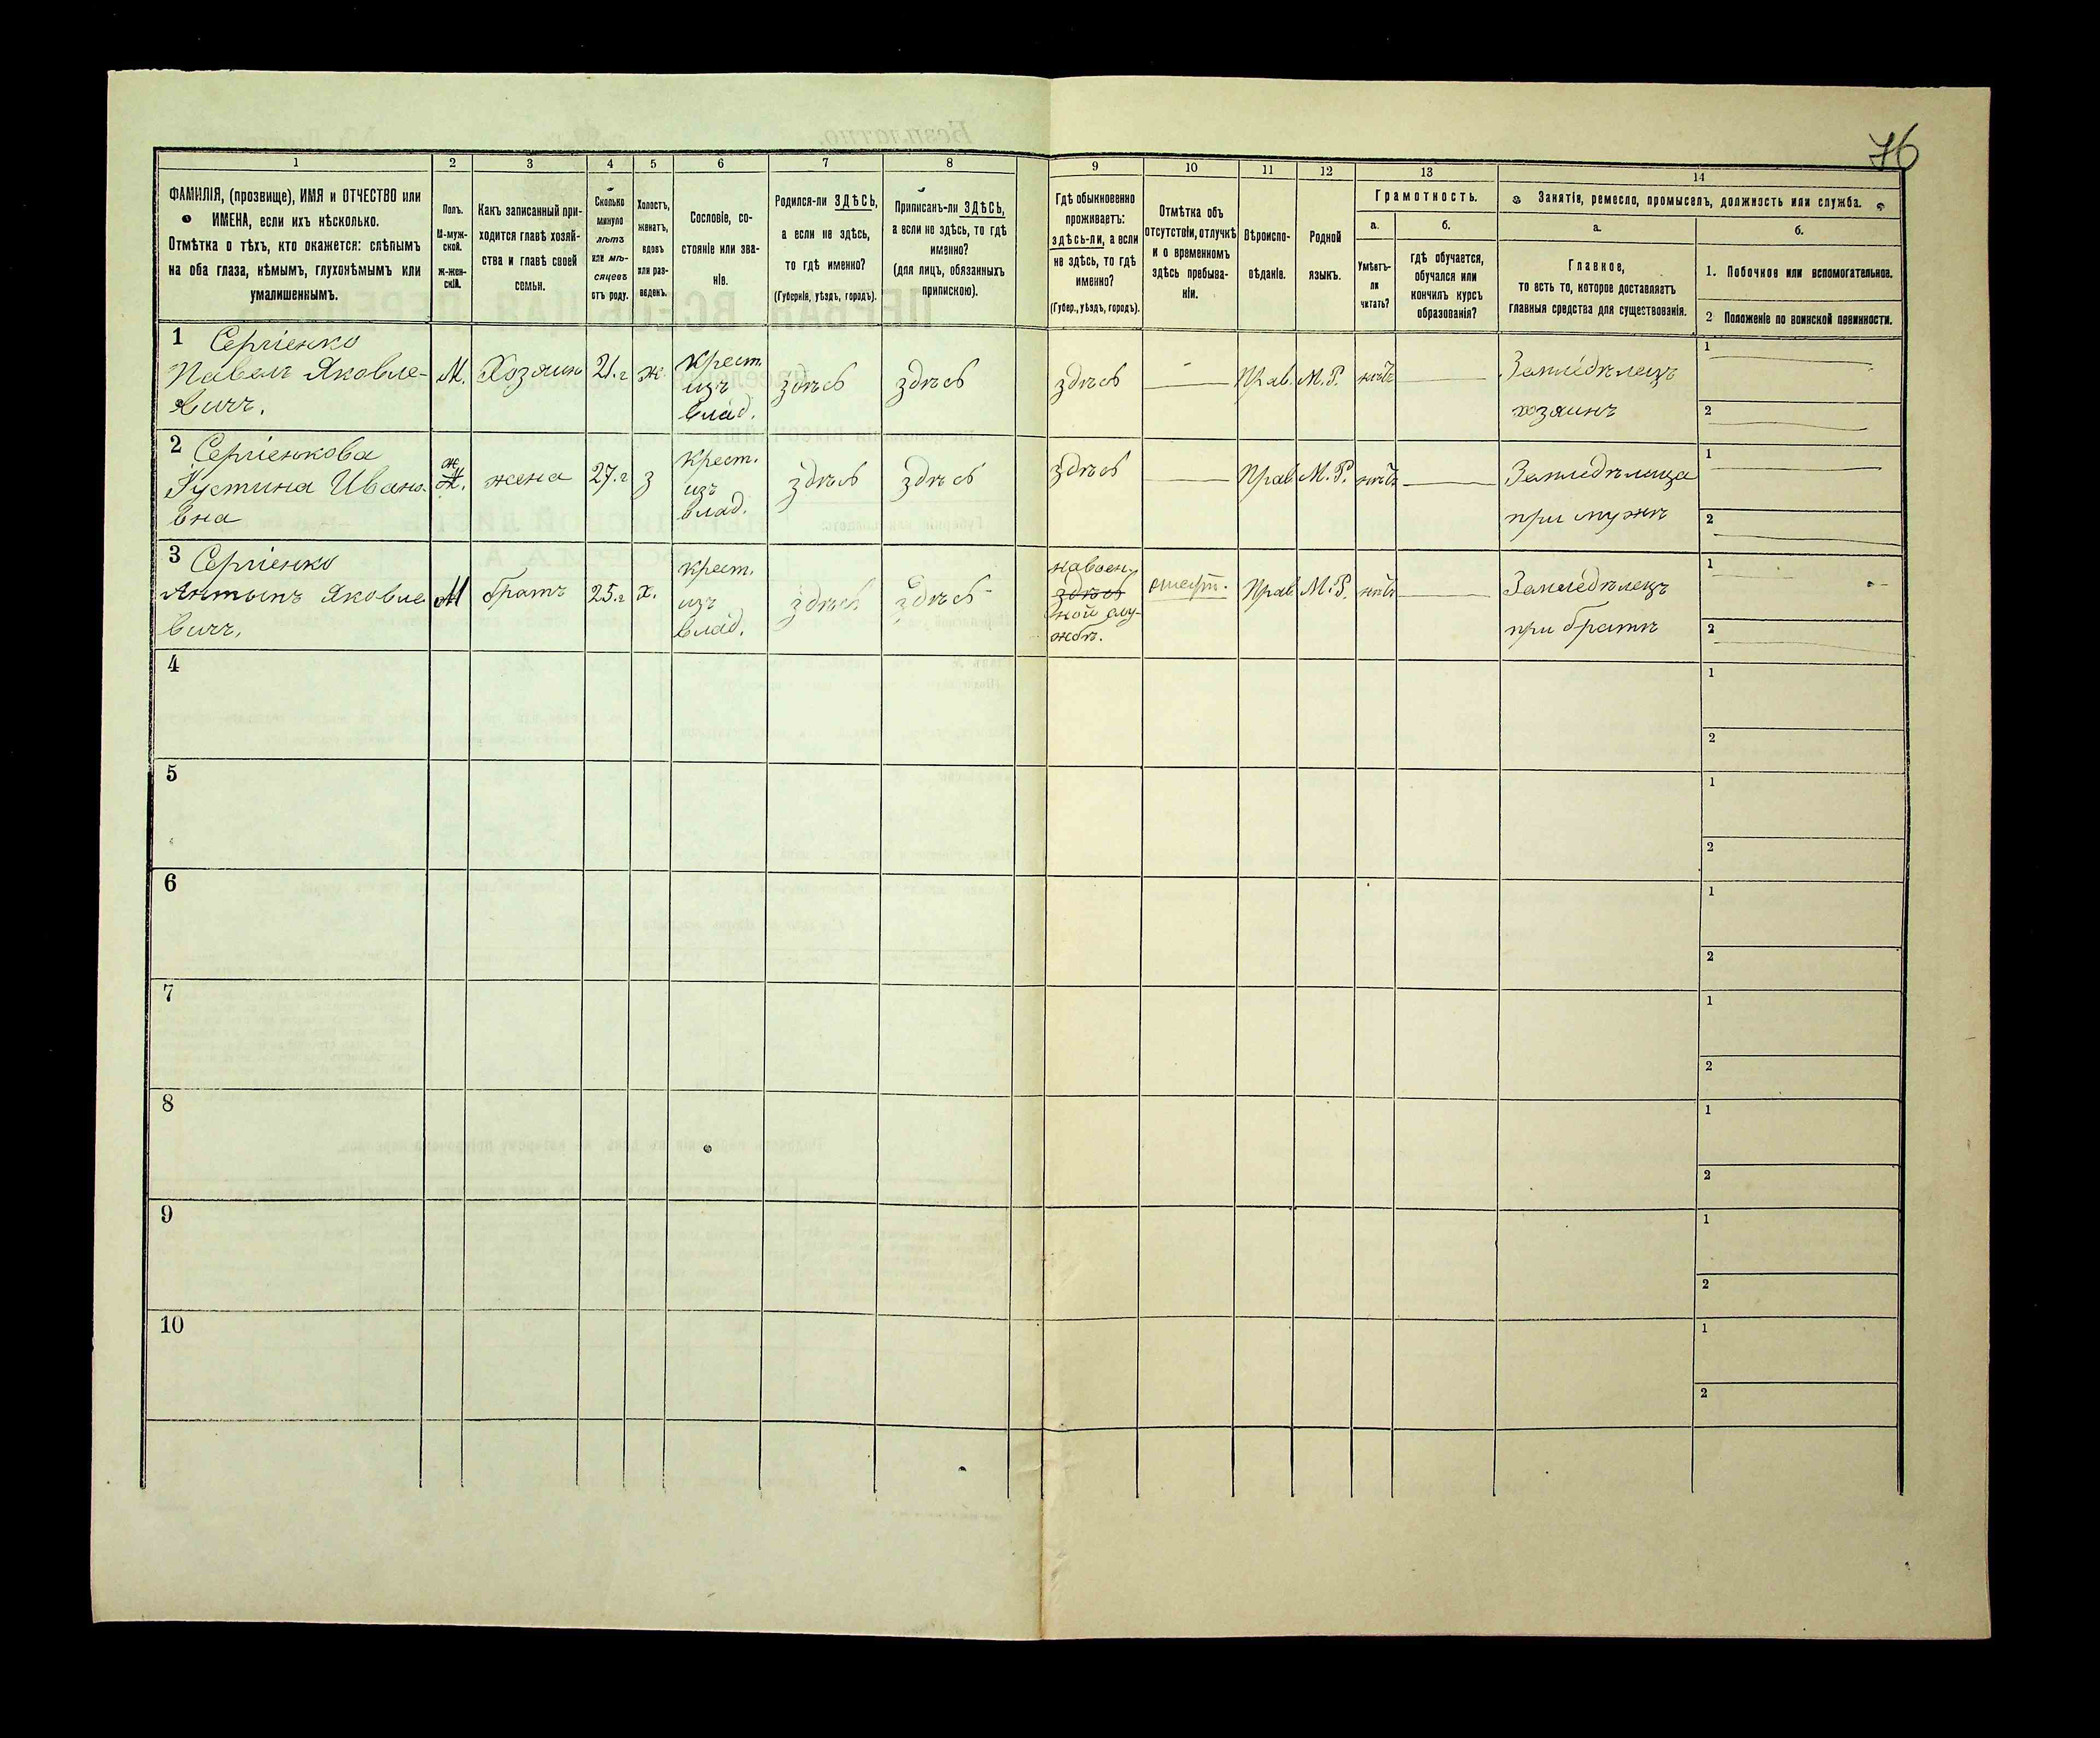 76
1 2 3 4 5 6 7 8 9 10 11 12 13 14
ФАМИЛІЯ, (прозвище), ИМЯ и ОТЧЕСТВО или
ИМЕНА, если ихъ нѣсколько.
Отмѣтка о тѣхъ, кто окажется: слѣпымъ
на оба глаза, нѣмымъ, глухонѣмымъ или
умалишеннымъ.
Полъ.
М-муж-
ской.
ж-жен-
скій.
Какъ записанный при-
ходится главѣ хозяй-
ства и главѣ своей
семьи.
Сколько
минуло
лѣтъ
или мѣ-
сяцевъ
отъ роду.
Холостъ,
женатъ,
вдовъ
или раз-
веденъ.
Сословіе, со-
стояніе или зва-
ніе.
Родился-ли ЗДѢСЬ,
а если не здѣсь,
то гдѣ именно?
(Губернія, уѣздъ, городъ).
Приписанъ-ли ЗДѢСЬ,
а если не здѣсь, то гдѣ
именно?
(для лицъ, обязанныхъ
припискою).
Гдѣ обыкновенно
проживаетъ:
здѣсь-ли, а если
не здѣсь, то гдѣ
именно?
(Губер., уѣздъ, городъ).
Отмѣтка объ
отсутствіи, отлучкѣ
и о временномъ
здѣсь пребыва-
ніи.
Вѣроиспо-
вѣданіе.
Родной
языкъ.
Грамотность.
а.
Умѣетъ-
ли
читать?
б.
гдѣ обучается,
обучался или
кончилъ курсъ
образованія?
Занятіе, ремесло, промыселъ, должность или служба.
а.
Главное,
то есть то, которое доставляетъ
главныя средства для существованія.
б.
1. Побочное или вспомогательное.
2 Положеніе по воинской повинности.
1 Сергіенко
Павелъ Яковле-
вичъ.
М.
Хозяинъ
21.г
ж
крест.
изъ
влад.
здѣсь
здѣсь
здѣсь
—
Прав.
М.Р.
нѣтъ
—
Земледѣлецъ
хозяинъ
1
2
2 Сергіенкова
Густина Ивано-
вна
ж
жена
27.г
з
крест.
изъ
влад.
здѣсь
здѣсь
здѣсь
—
Прав
М.Р.
нѣтъ
—
Земледѣлица
при мужѣ
1
2
3 Сергіенко
Антынъ Яковле
вичъ.
М
братъ
25.г
х.
крест.
изъ
влад.
здѣсь
здѣсь
на воен-
здѣсь
ной слу-
жбѣ.
Прав
М.Р.
нѣтъ
—
Земледѣлецъ
при братѣ
1
2
4
1
2
5
1
2
6
1
2
7
1
2
8
1
2
9
1
2
10
1
2